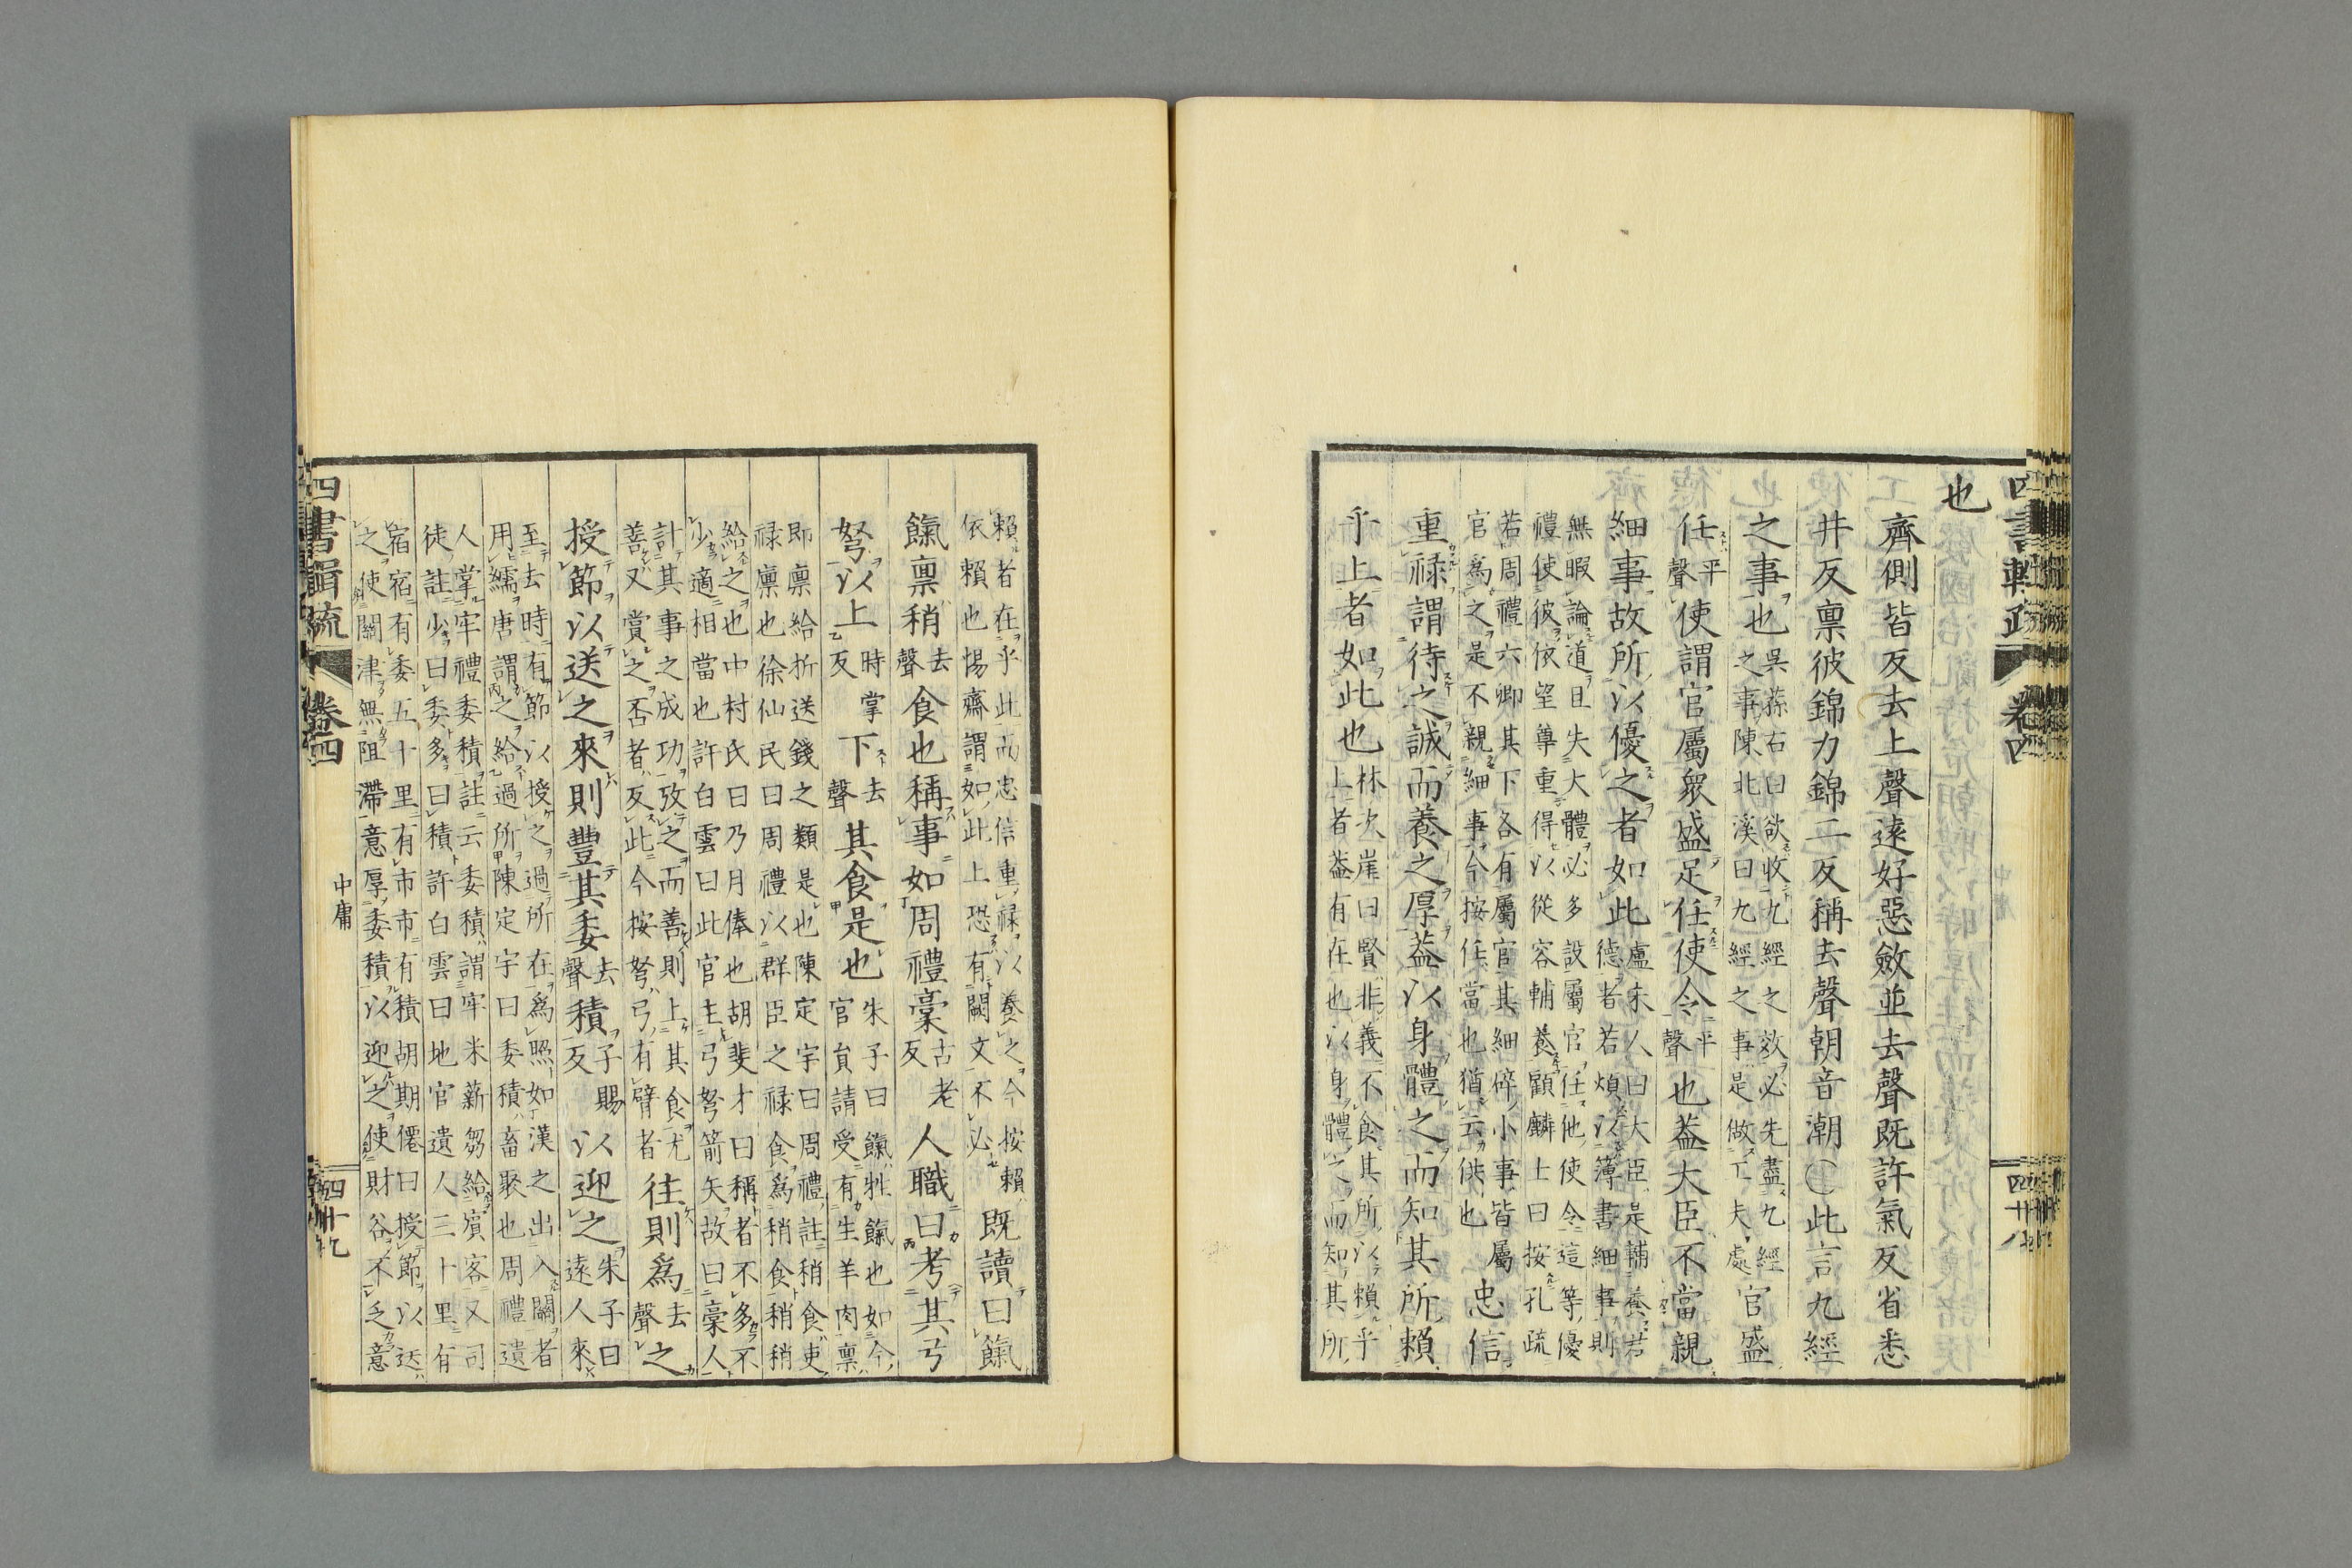 四書輯疏 卷四 四十八
也
齊側皆反去上聲遠好惡斂並去聲既許氣反省悉
井反稟彼錦力錦二反稱去聲朝音潮〇此言九經
之事也
吳蓀右曰欲收九經之效必先盡九經
之事陳北溪曰九經之事是做工夫處
官盛
任
平
聲
使謂官屬衆盛足任使令
平
聲
也葢大臣不當親
細事故所以優之者如此
盧未人曰大臣是輔養若
德者若煩以簿書細事則
無暇論道且失大體必多設屬官任他使令這等優
禮使彼依望尊重得以從容輔養顧麟士曰按孔疏
若周禮六卿其下各有屬官其細碎小事皆屬
官爲之是不親細事今按任當也猶云供也
忠信
重禄謂待之誠而養之厚葢以身體之而知其所賴
乎上者如此也
林次崖曰賢非義不食其所以賴乎
上者葢有在也以身體之而知其所
賴者在乎此而忠信重禄以養之今按賴
依賴也惕齋謂如此上恐有闕文不必
既讀曰餼
餼稟稍
去
聲
食也稱事如周禮稾
古老
反
人職曰考其弓
弩以上
時掌
反
下
去
聲
其食是也
朱子曰餼牲餼也如今
官員請受有生羊肉稟
即稟給折送錢之類是也陳定宇曰周禮註稍食吏
禄廩也徐仙民曰周禮以群臣之禄食爲稍食稍稍
給之也中村氏曰乃月俸也胡斐才曰稱者不多不
少適相當也許白雲曰此官主弓弩箭矢故曰稾人
計其事之成功攷之而善則上其食尤
善又賞之否者反此今按弩弓有臂者
往則爲
去
聲
之
授節以送之來則豐其委
去
聲
積
子賜
反
以迎之
朱子曰
遠人來
至去時有節以授之過所在爲照如漢之出入關者
用繻唐謂之給過所陳定宇曰委積畜聚也周禮遺
人掌牢禮委積註云委積謂牢米薪芻給賓客又司
徒註少曰委多曰積許白雲曰地官遺人三十里有
宿宿有委五十里有市市有積胡期僊曰授節以送
之使關津無阻滯意厚委積以迎之使財谷不乏意
四書輯疏 卷四 中庸 四十九